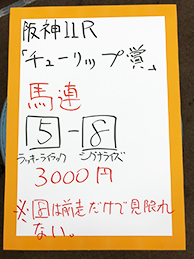 阪神11R
「チューリップ賞」
馬連
5-8
ラッキーライラック シグナライズ
3000円
※8は前走だけで見限れ
ない。